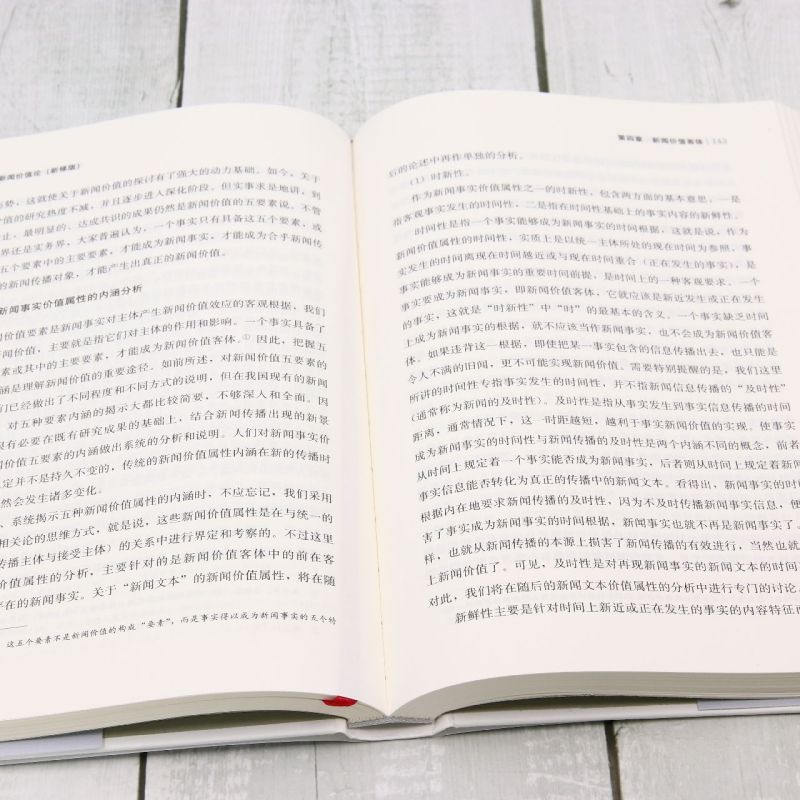 新闻价值论（新修版）
势，这就使关于新闻价值的探讨有了强大的动力基础。如今，关于
值的研究热度不减，并且逐步进入深化阶段。但实事求是地讲，到
止，最明显的、达成共识的成果仍然是新闻价值的五要素说。不管
界还是实务界，大家普遍认为，一个事实只有具备这五个要素，或
五个要素中的主要要素，才能成为新闻事实，才能成为合乎新闻传
的新闻传播对象，才能产生出真正的新闻价值。
新闻事实价值属性的内涵分析
闻价值要素是新闻事实对主体产生新闻价值效应的客观根据，我们
新闻价值，主要就是指它们对主体的作用和影响。一个事实具备了
素或其中的主要要素，才能成为新闻价值客体。①因此，把握五
涵是理解新闻价值的重要途径。如前所述，对新闻价值五要素的
们已经做出了不同程度和不同方式的说明，但在我国现有的新闻
对五种要素内涵的揭示大都比较简要，不够深入和全面。因
很有必要在既有研究成果的基础上，结合新闻传播出现的新景
闻价值五要素的内涵做出系统的分析和说明。人们对新闻事实价
定并不是持久不变的，传统的新闻价值属性内涵在新的传播时
然会发生诸多变化。
、系统揭示五种新闻价值属性的内涵时，不应忘记，我们采用
相关论的思维方式，就是说，这些新闻价值属性是在与统一的
传播主体与接受主体）的关系中进行界定和考察的。不过这里
价值属性的分析，主要针对的是新闻价值客体中的前在客
存在的新闻事实。关于“新闻文本”的新闻价值属性，将在随
这五个要素不是新闻价值的构成“要素”，而是事实得以成为新闻事实的五个特
第四章 新闻价值客体
后的论述中再作单独的分析。
（1）时新性。
作为新闻事实价值属性之一的时新性，包含两方面的基本意思，一是
指客观事实发生的时间性，二是指在时间性基础上的事实内容的新鲜性。
时间性是指一个事实能够成为新闻事实的时间根据，这就是说，作为
新闻价值属性的时间性，实质上是以统一主体所处的现在时间为参照，事
实发生的时间离现在时间越近或与现在时间重合（正在发生的事实），是
事实能够成为新闻事实的重要时间前提，是时间上的一种客观要求。一个
事实要成为新闻事实，即新闻价值客体，它就应该是新近发生或正在发生
的事实，这就是“时新性”中“时”的最基本的含义。一个事实缺乏时间
上成为新闻事实的根据，就不应该当作新闻事实，也不会成为新闻价值客
体。如果违背这一根据，即使把某一事实包含的信息传播出去，也只能是
令人不满的旧闻，更不可能实现新闻价值。需要特别提醒的是，我们这里
所讲的时间性专指事实发生的时间性，并不指新闻信息传播的“及时性”
（通常称为新闻的及时性）。及时性是指从事实发生到事实信息传播的时间
距离，通常情况下，这一时距越短，越利于事实新闻价值的实现。使事实
成为新闻事实的时间性与新闻传播的及时性是两个内涵不同的概念，前者
从时间上规定着一个事实能否成为新闻事实，后者则从时间上规定着新闻
事实信息能否转化为真正的传播中的新闻文本。看得出，新闻事实的时间
根据内在地要求新闻传播的及时性，因为不及时传播新闻事实信息，便
害了事实成为新闻事实的时间根据，新闻事实也就不再是新闻事实了。
样，也就从新闻传播的本源上损害了新闻传播的有效进行，当然也就
上新闻价值了。可见，及时性是对再现新闻事实的新闻文本的时间要
对此，我们将在随后的新闻文本价值属性的分析中进行专门的讨论。
新鲜性主要是针对时间上新近或正在发生的事实的内容特征而